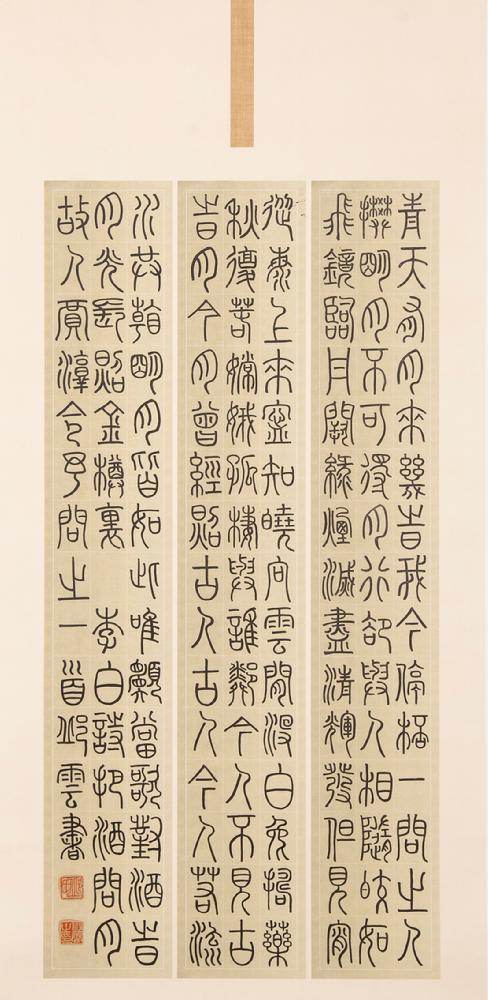 青天有月來幾時我今停桮一問之人
攀明月不可得月行卻與人相隨皎如
飛鏡臨丹闕綠煙滅盡清輝發但見宵
從海上來寧知曉向雲間沒白兔搗藥
秋復春嫦娥孤棲與誰鄰今人不見古
時月今月曾經照古人古人今人若流
水共看明月皆如此唯願當歌對酒時
月光長照金樽裏 李白詩把酒問月
故人賈淳令予問之一首邱雲書